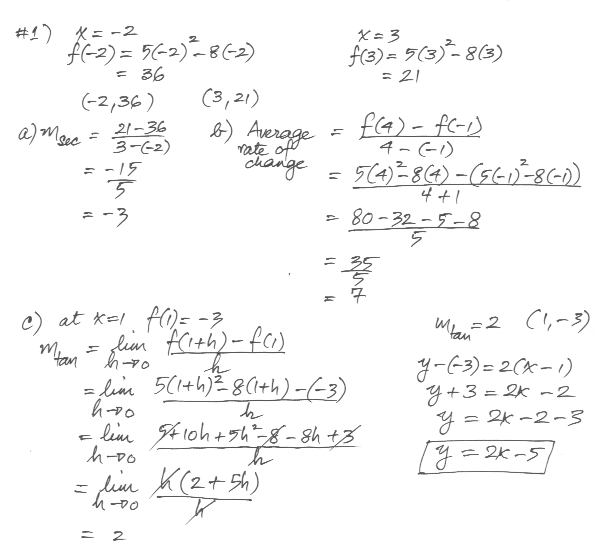 #1) x = -2
f(-2) = 5(-2)² - 8(-2)
= 36
x = 3
f(3) = 5(3)² - 8(3)
= 21
(-2, 36) (3, 21)
a) m_sec = (21-36)/(3-(-2))
= -15/5
= -3
b) Average rate of change = (f(4) - f(-1))/(4 - (-1))
= (5(4)² - 8(4) - (5(-1)² - 8(-1)))/(4+1)
= (80 - 32 - 5 - 8)/5
= 35/5
= 7
c) at x=1 f(1) = -3
m_tan = lim h→0 (f(1+h) - f(1))/h
= lim h→0 (5(1+h)² - 8(1+h) - (-3))/h
= lim h→0 (5 + 10h + 5h² - 8 - 8h + 3)/h
= lim h→0 h(2 + 5h)/h
= 2
m_tan = 2 (1, -3)
y - (-3) = 2(x - 1)
y + 3 = 2x - 2
y = 2x - 2 - 3
y = 2x - 5